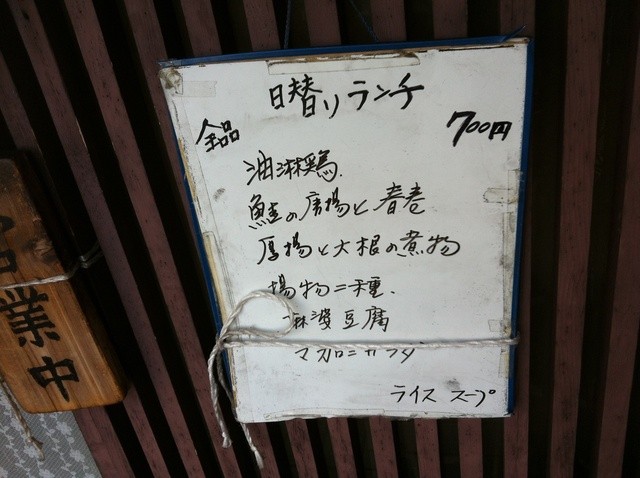 日替りランチ
全品
700円
油淋鶏
鮭の唐揚と春巻
厚揚と大根の煮物
揚物二種
麻婆豆腐
マカロニサラダ
ライス スープ
営業中